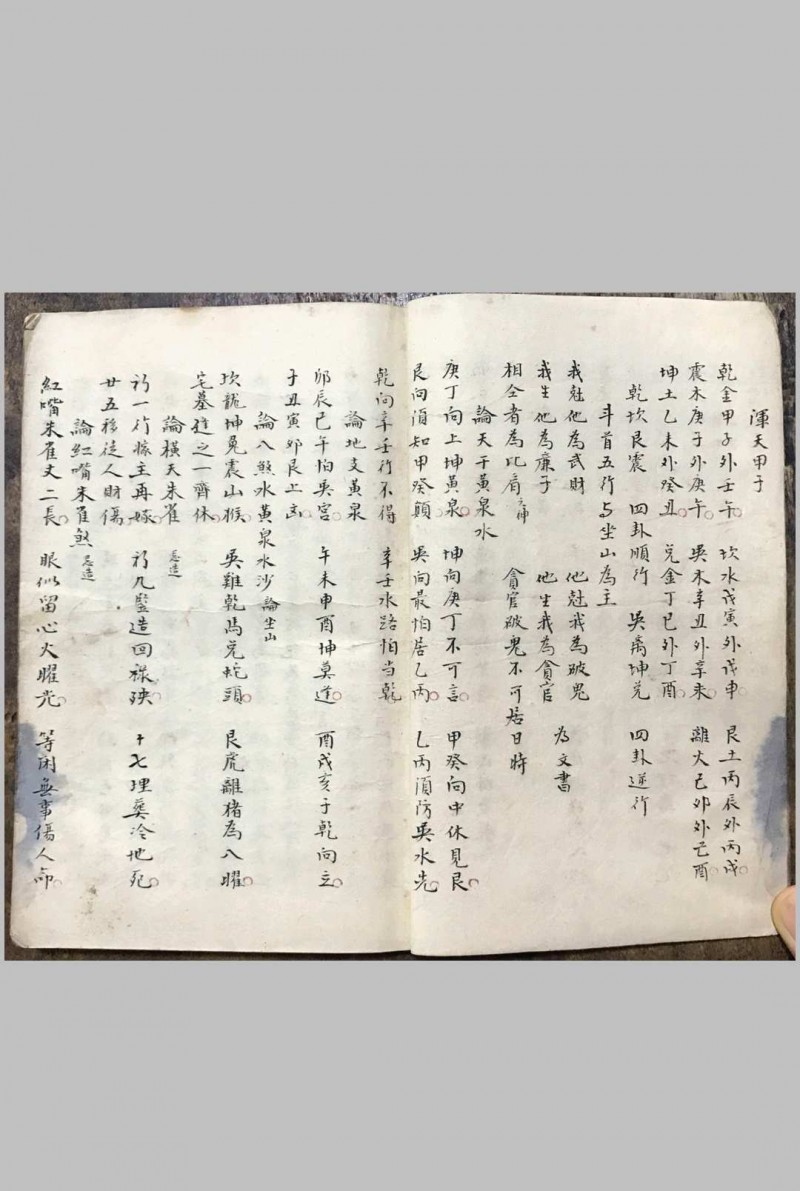 渾天甲子
乾金甲子外壬午 坎水戊寅外戊申 艮土丙辰外丙戌
震木庚子外庚午 吳木辛丑外辛未 離火己卯外己酉
坤土乙未外癸丑 兌金丁巳外丁酉
乾坎艮震 四卦順行 吳离坤兌 四卦逆行
斗首五行与坐山為主
我尅他為武財 他尅我為破鬼
我生他為廉子 他生我為貪官 為文書
相仝者為比肩 貪官破鬼不可居日時
論天干黃泉水
庚丁向上坤黃泉 坤向庚丁不可言 甲癸向中休見艮
艮向須知甲癸顛 吳向最怕居乙丙 乙丙須防吳水先
乾向辛壬行不得 辛壬水路怕当乾
論地支黃泉
卯辰巳午怕吳宮 午未申酉坤莫逢 酉戌亥子乾向立
子丑寅卯艮上凶
論八煞水黃泉水沙 論坐山
坎龍坤兔震山猴 吳雞乾馬兌蛇頭 艮虎離猪為八曜
宅墓逢之一齊休
論橫天朱雀 忌造
初一行嫁主再嫁 初九豎造回祿殃 十七埋葬冷地死
廿五移徒人財傷
論紅嘴朱雀煞 忌造
紅嘴朱雀丈二長 眼似留心火曜光 等闲無事傷人命